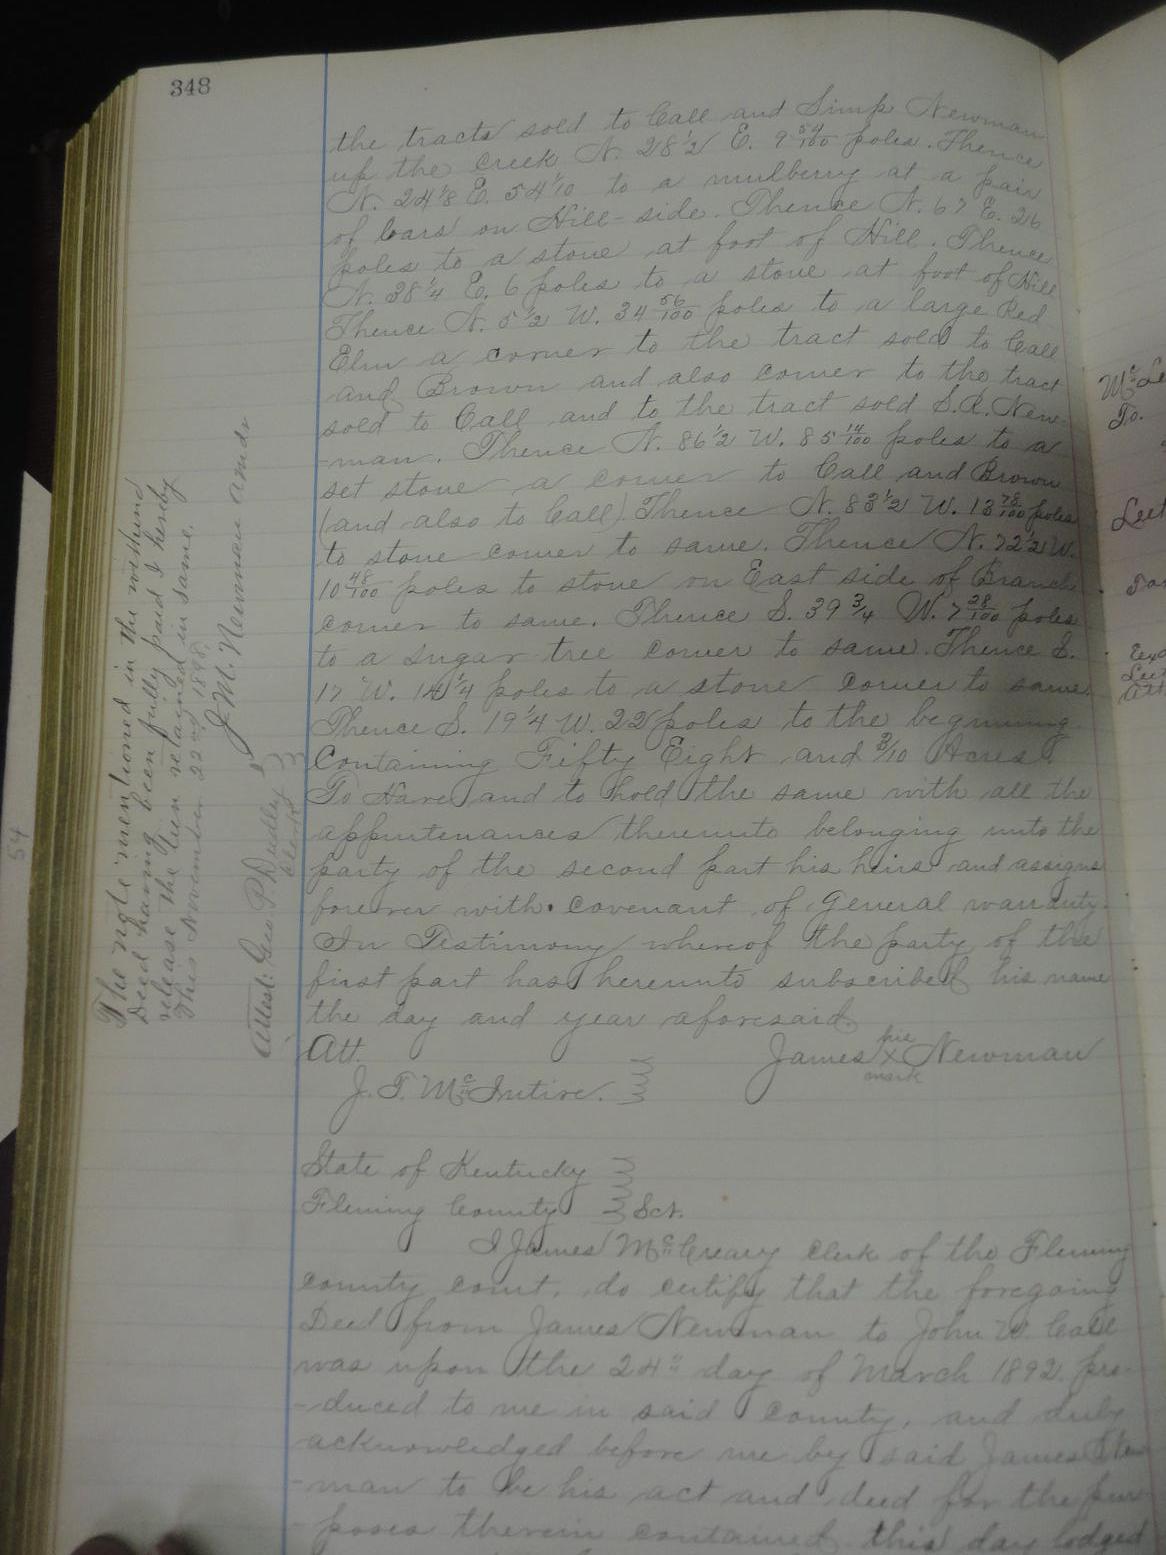 348
the tracts sold to Call and Simp Newman
up the creek N. 28 1/2 E. 9 52/100 poles. Thence
N. 24 1/8 E. 54 1/10 to a mulberry at a pair
of bars on Hill-side. Thence N. 67 E. 26
poles to a stone at foot of Hill. Thence
N. 38 1/4 E. 6 poles to a stone at foot of Hill
Thence N. 5 1/2 W. 34 56/100 poles to a large Red
Elm a corner to the tract sold to Call
and Brown and also corner to the tract
sold to Call and to the tract sold S.R. New-
-man. Thence N. 86 1/2 W. 85 14/100 poles to a
set stone a corner to Call and Brown
(and also to Call). Thence N. 83 1/2 W. 13 78/100 poles
to stone corner to same. Thence N. 72 1/2 W.
10 48/100 poles to stone on East side of Branch
corner to same. Thence S. 39 3/4 W. 7 28/100 poles
to a sugar tree corner to same. Thence S.
17 W. 14 1/4 poles to a stone corner to same.
Thence S. 19 1/4 W. 22 poles to the beginning.
Containing Fifty Eight and 3/10 Acres
To Have and to hold the same with all the
appurtenances thereunto belonging unto the
party of the second part his heirs and assigns
forever with covenant of General warranty.
In Testimony whereof the party of the
first part has hereunto subscribed his name
the day and year aforesaid.
Att. James his x mark Newman
J. T. McIntire.
State of Kentucky
Fleming County Sct.
I James McCreary clerk of the Fleming
county court, do certify that the foregoing
Deed from James Newman to John W. Call
was upon the 24" day of March 1892 pro-
-duced to me in said County, and duly
acknowledged before me by said James New
-man to be his act and deed for the pur-
-poses therein contained this day lodged
The note mentioned in the within
Deed having been fully paid I hereby
release the lien retained in same.
This November 22nd 1898.
J. M. Newman
Attest: Geo. P. Dudley
Clerk
54
To.